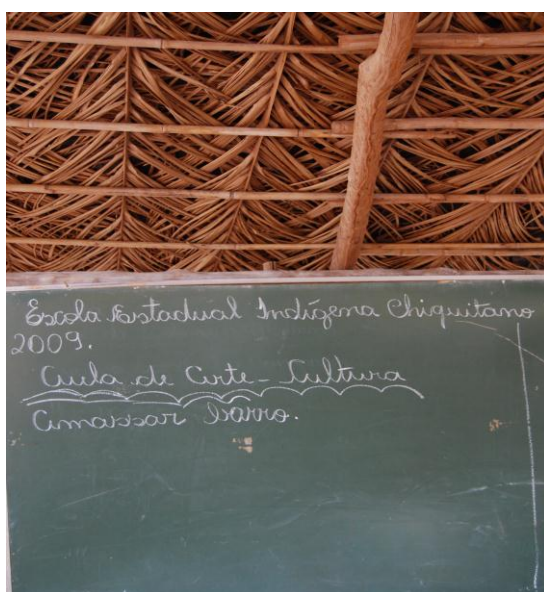 Escola Estadual Indígena Chiquitano
2009.
Aula de Arte - Cultura
Amassar barro.